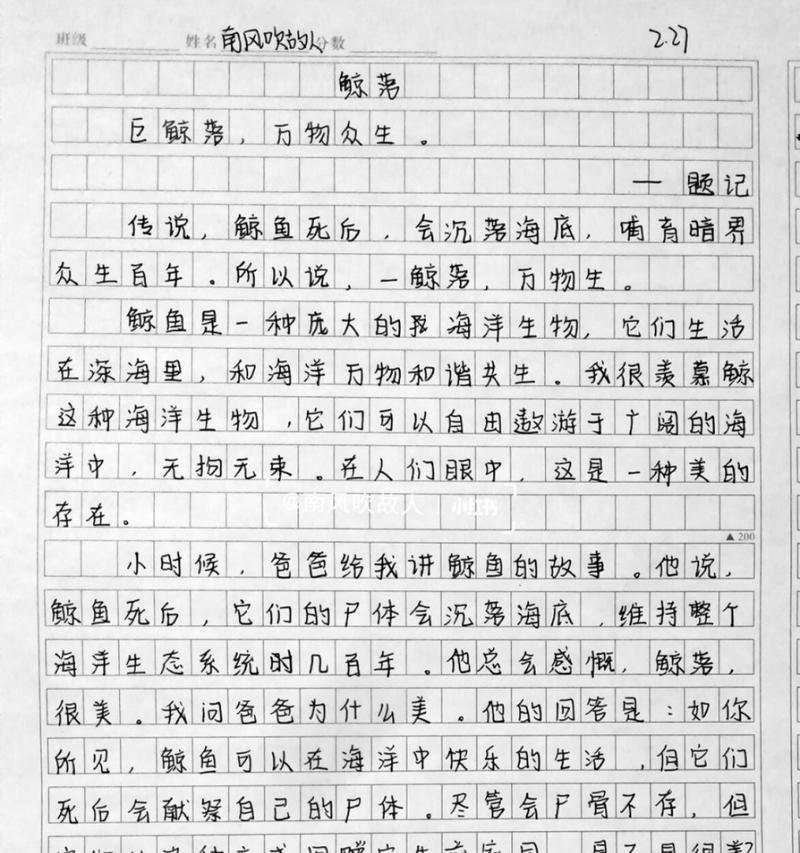 班级 姓名 南风吹故人 分数 2.27
鲸落
巨鲸落，万物众生。
— 题记
传说，鲸鱼死后，会沉落海底，哺育暗界
众生百年。所以说，一鲸落，万物生。
鲸鱼是一种庞大的海洋生物，它们生活
在深海里，和海洋万物和谐共生。我很羡慕鲸
这种海洋生物，它们可以自由遨游于广阔的海
洋中，无拘无束。在人们眼中，这是一种美的
存在。
@南风吹故人 | 小红书
▲200
小时候，爸爸给我讲鲸鱼的故事。他说，
鲸鱼死后，它们的尸体会沉落海底，维持整个
海洋生态系统时几百年。他总会感慨，鲸落，
很美。我问爸爸为什么美。他的回答是：如你
所见，鲸鱼可以在海洋中快乐的生活，但它们
死后会献祭自己的尸体。尽管会尸骨不存，但